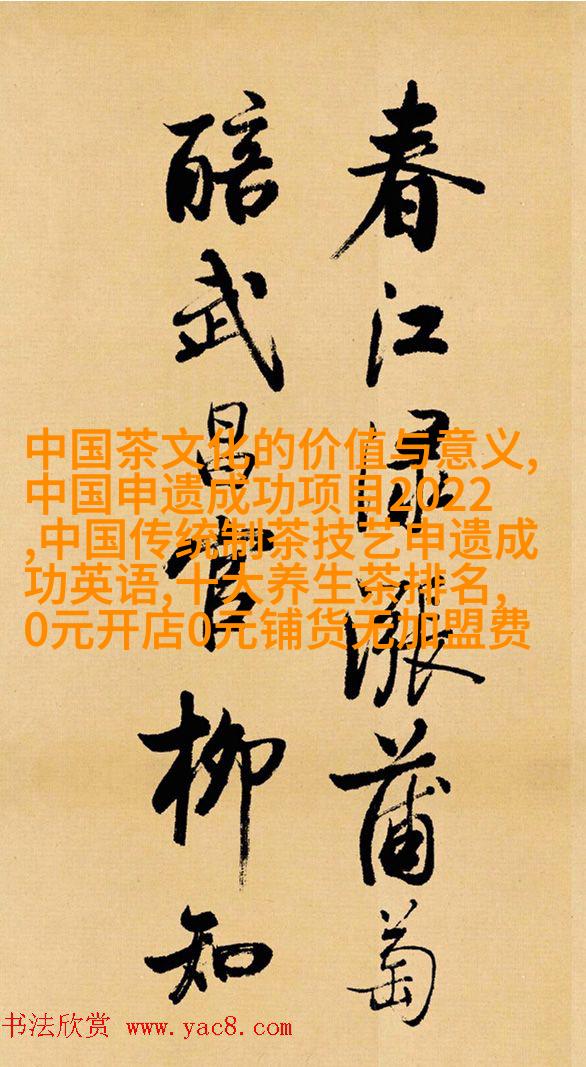 春江渌涨蒲萄
醅武昌官柳知
中国茶文化的价值与意义,
中国申遗成功项目2022
,中国传统制茶技艺申遗成
功英语,十大养生茶排名,
0元开店0元铺货无加盟费
书法欣赏 www.yac8.com